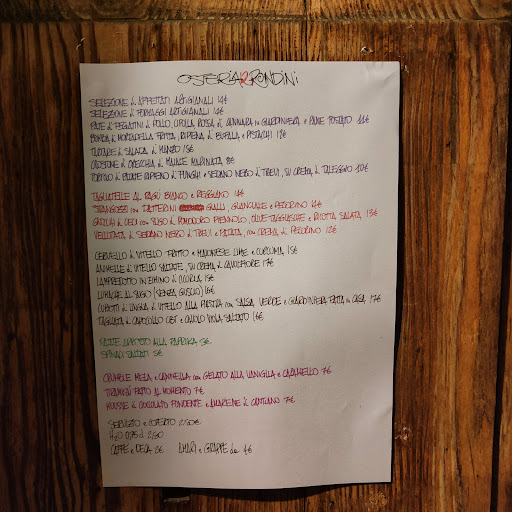 OSTERIA RONDINI
SELEZIONE di AFFETTATI ARTIGIANALI 14€
SELEZIONE di FORMAGGI ARTIGIANALI 14€
PATE' di FEGATINI di POLLO, CIPOLLA ROSSA di CANNARA in GIARDINIERA e PANE TOSTATO 11€
BOMBA di MORTADELLA FRITTA, RIPIENA di BUFALA e PISTACCHI
TARTARE di SCALCO di MANZO 15€
CROSTONE di ORECCHIA di MAIALE MARINATA 8€
TORTINO di PATATE RIPIENO di FUNGHI e SEDANO NERO di TREVI, SU CREMA di TALEGGIO 10€
TAGLIATELLE AL RAGÙ BIANCO e REGGIANO 14€
STRANGOZZI con DATTERINI GIALLI, GUANCIALE e PECORINO
GNOCCHI di CECI con SUGO di POMODORO PIENNOLO, OLIVE TAGGIASCHE e RICOTTA SALATA 13€
VELLUTATA di SEDANO NERO di TREVI e PATATA, con CREMA di PECORINO 12€
CERVELLO di VITELLO FRITTO e MAIONESE LIME e CURCUMA 15€
ANIMELLE di VITELLO SALTATE, SU CREMA di CAVOLFIORE 17€
LAMPREDOTTO IN ZIMINO di CICORIA 15€
LUMACHE AL SUGO (SENZA GUSCIO) 16€
CUBOTTI di LINGUA di VITELLO ALLA PIASTRA con SALSA VERDE e GIARDINIERA FATTA in CASA 17€
TAGLIATA di CAPOCOLLO CBT e CAVOLO VIOLA SALTATO 16€
PATATE ARROSTO ALLA PAPRIKA 5€
SPINACI SALTATI 5€
CRUMBLE MELA e CANNELLA con GELATO ALLA VANIGLIA e CARAMELLO 7€
TIRAMISÙ FATTO AL MOMENTO 7€
MOUSSE di CIOCCOLATO FONDENTE e AMARENE di CANTIANO 7€
SERVIZIO e COPERTO 2.50€
H2O 0,75 cl 2,50
CAFFE' e DECA 2€ AMARI e GRAPPE da 4€